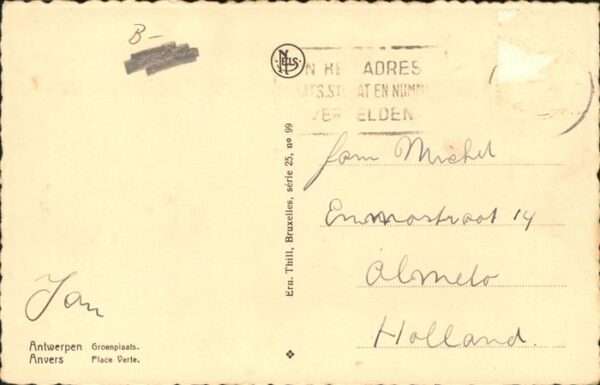 B-
NELS
N HE ADRES
ATS.STRAAT EN NUMM
VERMELDEN
Ern. Thill, Bruxelles, série 25, nº 99
Fam Michel
Emmastraat 14
Almelo
Holland.
Jan
Antwerpen Groenplaats.
Anvers Place Verte.